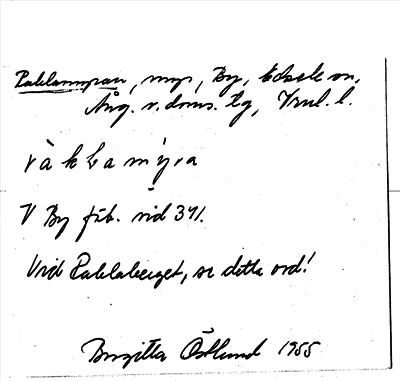 Raklamyran, myr, By, Edsele sn,
Ång. v. doms. tg, Vnl. l.
r à k l a m ý r a
V By fäb. vid 341.
Vid Raklaberget, se detta ord!
Birgitta Östlund 1955